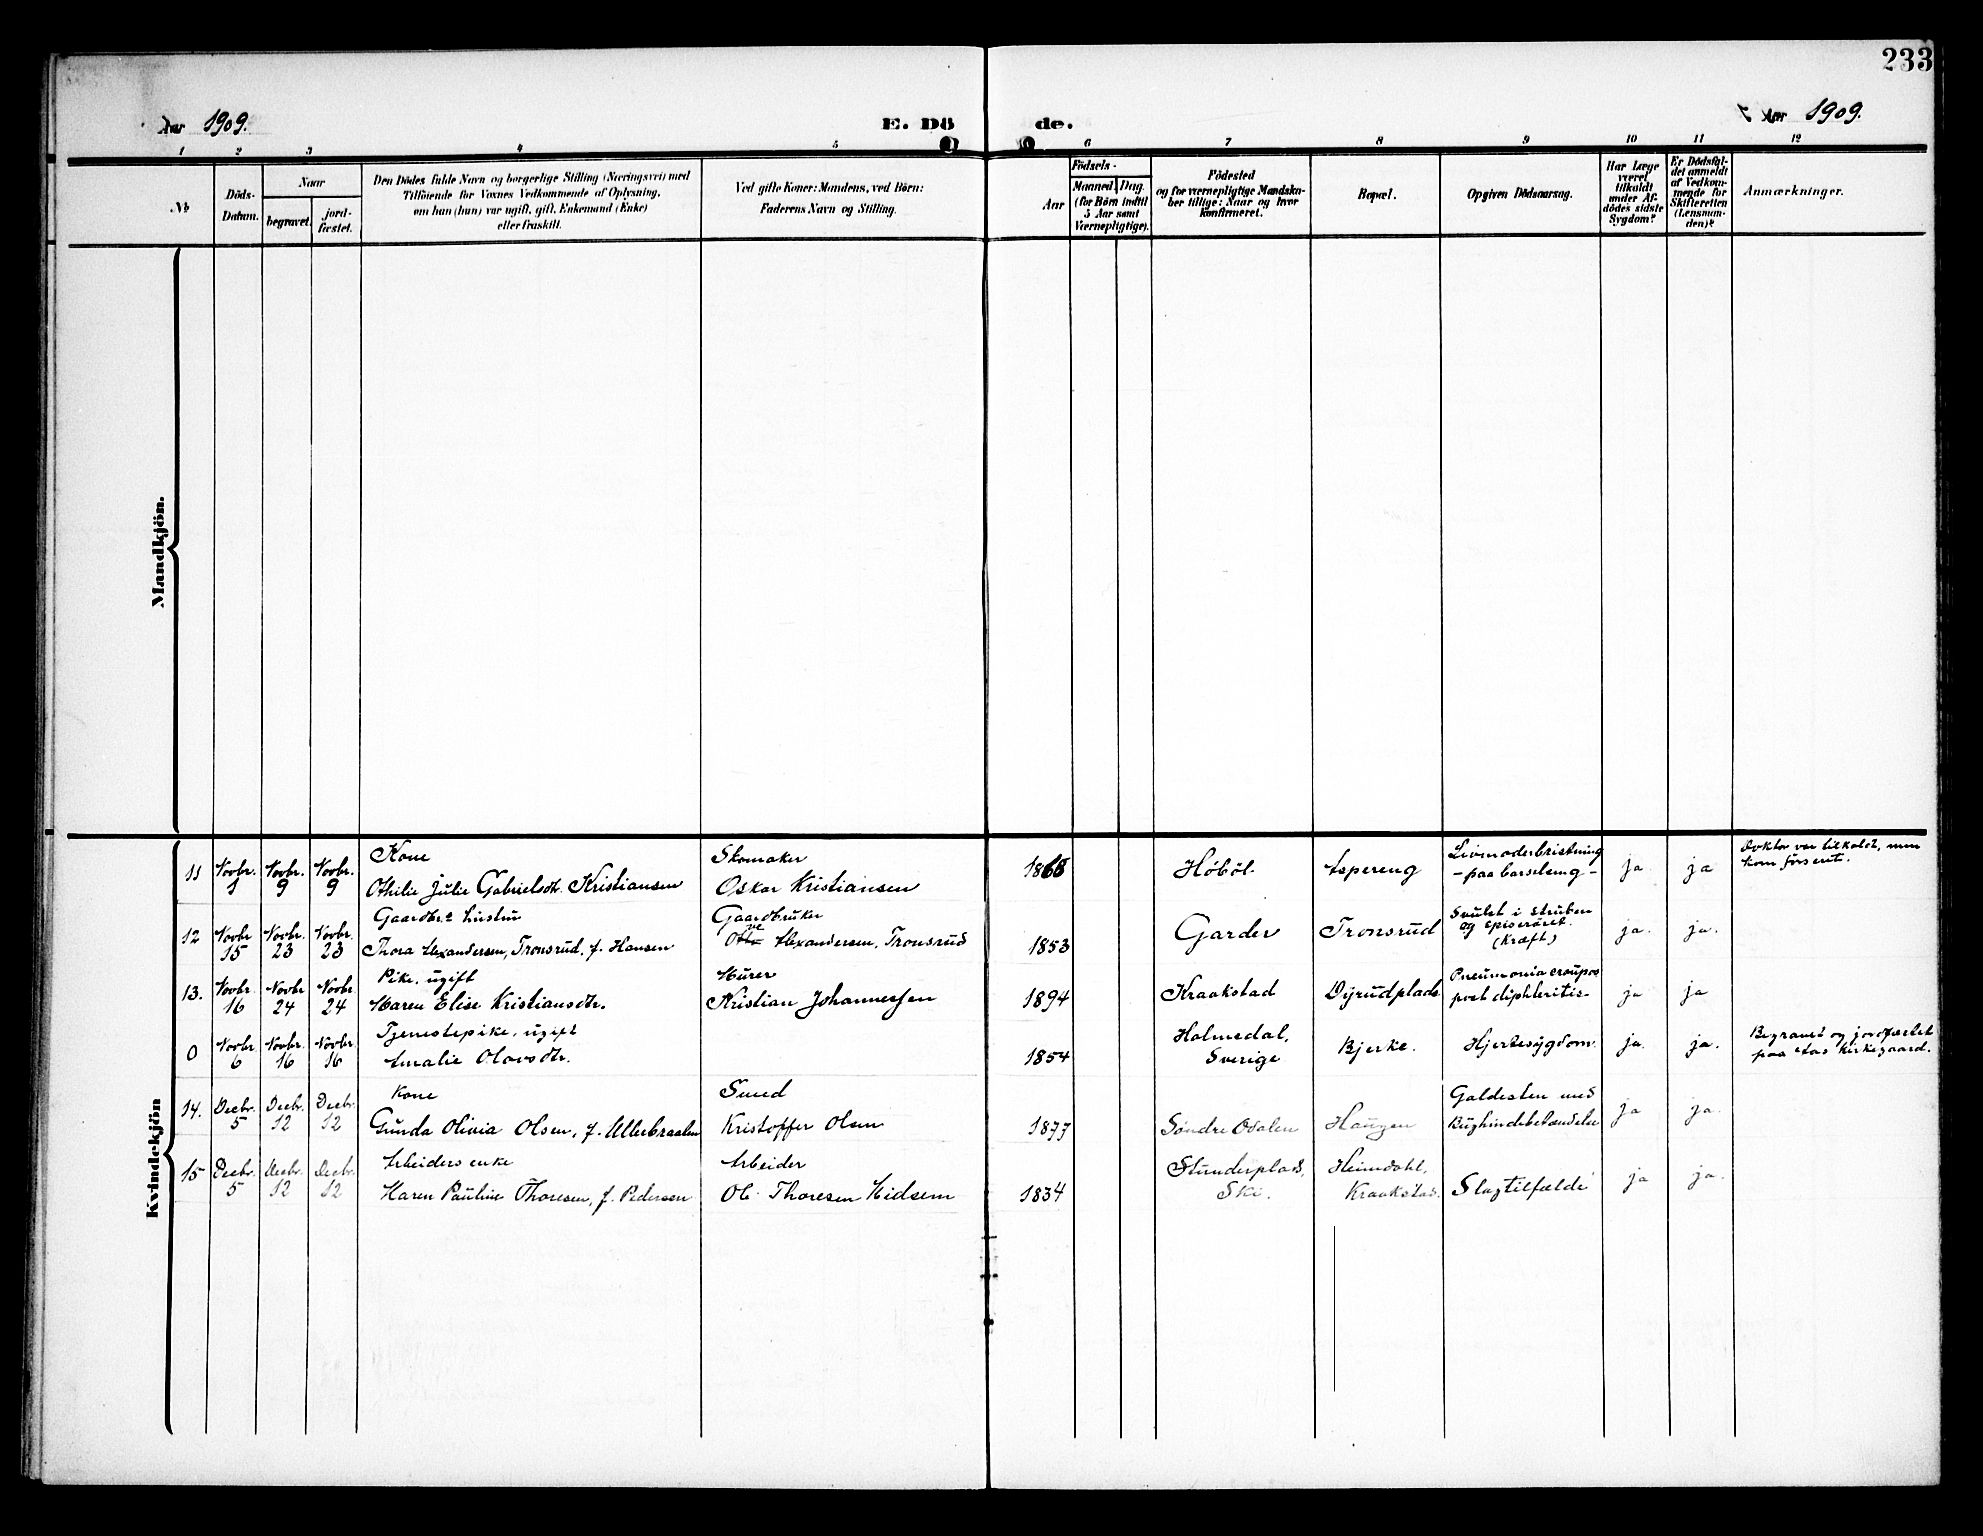 233
Aar 1909.
E. Dö
de.
Aar 1909.
1 2 3 4 5 6 7 8 9 10 11 12
№
Döds-
Datum.
Naar
begravet.
jord-
fæstet.
Den Dödes fulde Navn og borgerlige Stilling (Næringsvei) med
Tilföiende for Voxnes Vedkommende af Oplysning,
om han (hun) var ugift, gift, Enkemand (Enke)
eller fraskilt.
Ved gifte Koner: Mandens, ved Börn:
Faderens Navn og Stilling.
Födsels-
Aar
Maaned Dag.
(for Börn indtil
5 Aar samt
Værnepligtige).
Födested
og for værnepligtige Mandska-
ber tillige: Naar og hvor
konfirmeret.
Bopæl.
Opgiven Dödsaarsag.
Har Læge
været
tilkaldt
under Af-
dödes sidste
Sygdom?
Er Dödsfal-
det anmeldt
af Vedkom-
mende for
Skifteretten
(Lensman-
den)?
Anmærkninger.
Mandkjön.
Kvindekjön
11 Novbr. 1 Novbr. 9 Novbr. 9
Kone
Othilie Julie Gabrielsdtr. Kristiansen
Skomaker
Oskar Kristiansen
1868
Höböl
Aspereng
Livmoderbristning
- paa barselseng -
ja. ja
Doktor var tilkaldt, men
kom forsent.
12 Novbr. 15 Novbr. 23 Novbr. 23
Gaardbr.s hustru
Thora Alexandersen, Tronsrud, f. Hansen
Gaardbruker
Ove Alexandersen, Tronsrud
1853
Garder
Tronsrud
Svulst i struben
og spiserøret.
(Kræft)
ja. ja.
13. Novbr. 16 Novbr. 24 Novbr. 24
Pike, ugift
Maren Elise Kristiansdtr.
Murer
Kristian Johannessen
1894
Kraakstad
Dyrudplads
Pneumonia croupos
post diphteritis-
ja ja
0 Novbr. 6 Novbr. 16 Novbr. 16
Tjenestepike, ugift
Amalie Olovsdtr.
1854
Holmedal,
Sverige
Bjerke.
Hjertesygdom.
ja. ja.
Begravet og jordfæstet
paa Aas kirkegaard.
14. Decbr. 5 Decbr. 12 Decbr. 12
Kone
Gunda Olivia Olsen, f. Ullerbraaten
Smed
Kristoffer Olsen
1877
Søndre Odalen
Haugen
Galdesten med
Bughindebetændelse
ja ja.
15 Decbr. 5 Decbr. 12 Decbr. 12
Arbeiders enke
Maren Pauline Thoresen, f. Pedersen
Arbeider
Ole Thoresen Midsem
1834
Stunderplads,
Ski.
Heimdahl,
Kraakstad.
Slagtilfælde
ja ja.